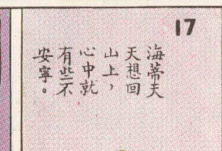 17
海蒂夫
天想回
山上，
心中就
有些不
安寧。